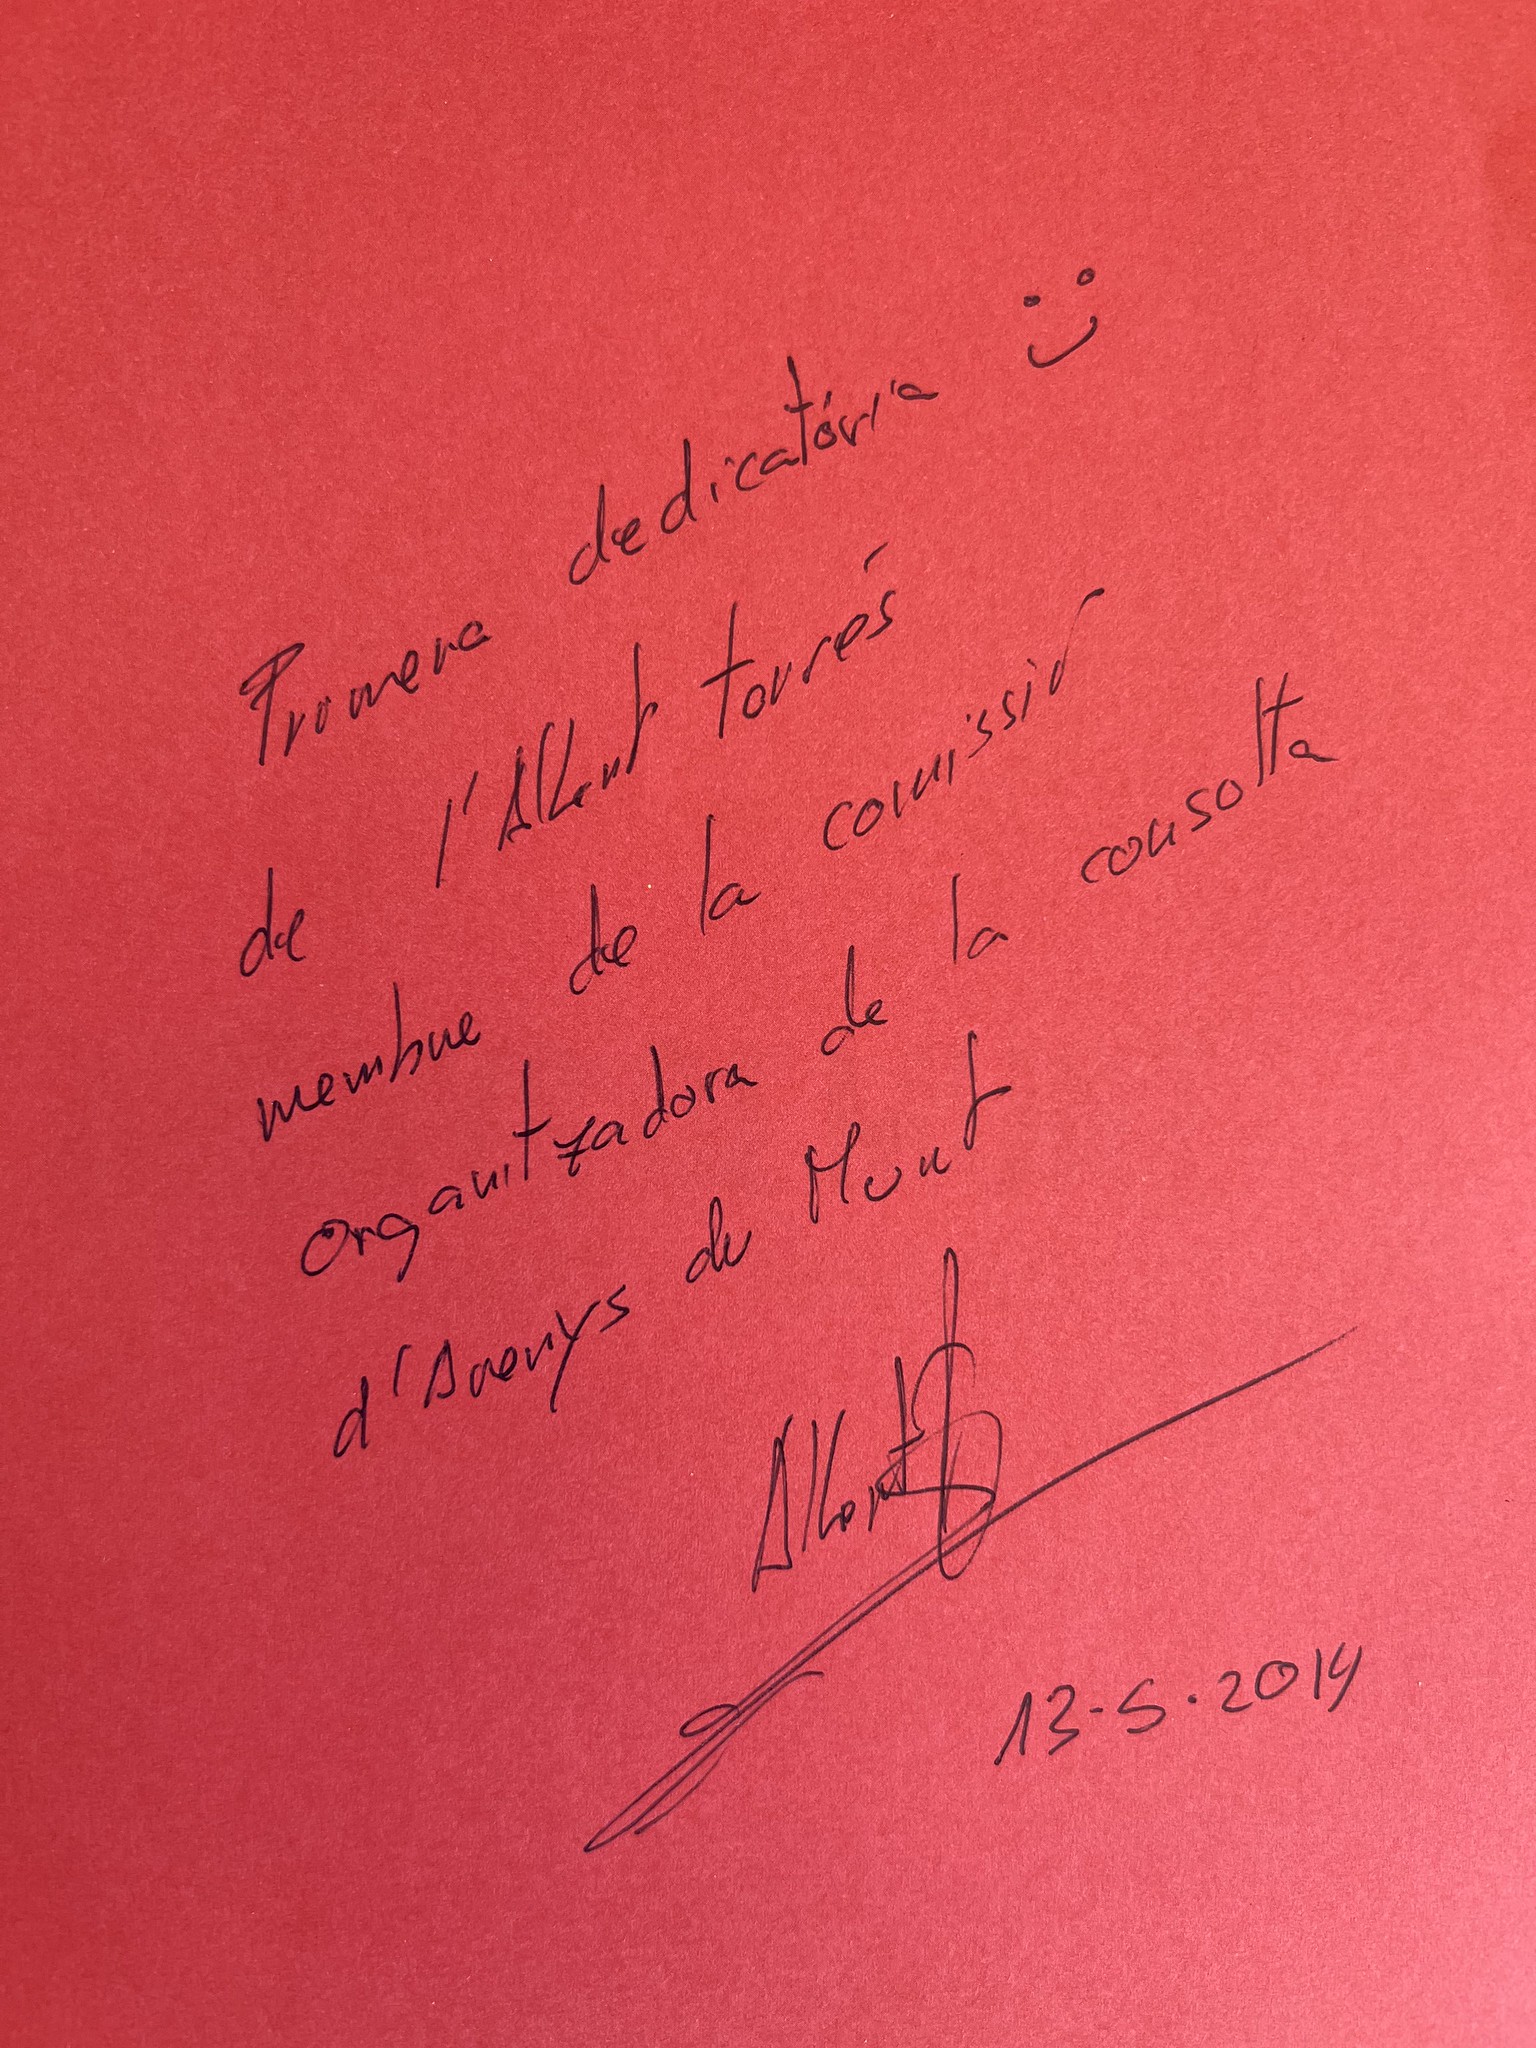 Promera dedicatória :)
de l'Albert Torrés
membre de la comissió
organitzadora de la consolta
d'Arenys de Munt
Albert
13-5-2014